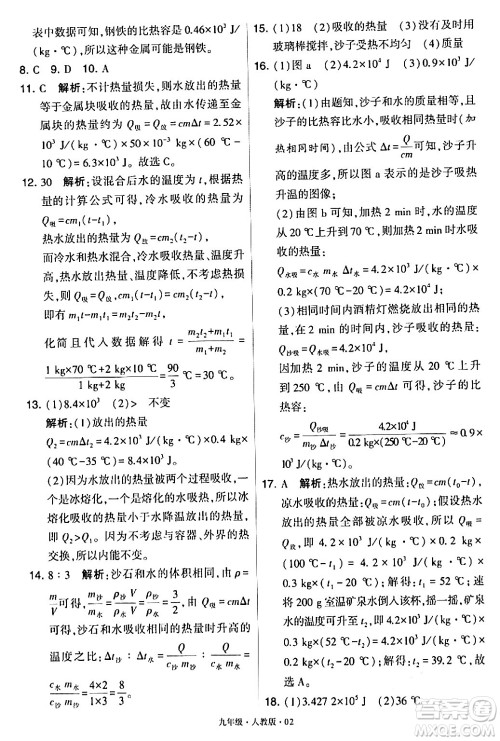 表中数据可知，钢铁的比热容是 0.46×10³ J/
(kg·℃)，所以这种金属可能是钢铁。
8. C　9. D　10. A
11. C　解析：不计热量损失，则水放出的热量
等于金属块吸收的热量，由水传递至金
属块的热量为 Q吸=cmΔt=2.52×
10³ J/(kg·℃)×50×10⁻³ kg×(60 ℃-
10 ℃)=6.3×10³ J。故选 C。
12. 30　解析：设混合后水的温度为 t，根据热
量的计算公式可得，冷水吸收的热量
Q吸=cm₁Δt=cm₁(t-t₁)，
热水放出的热量 Q放=cm₂(t₂-t)，
而冷水和热水混合，冷水吸热，温度升
高，热水放热，温度降低，不考虑热损失，
则 Q吸=Q放，
即有 cm₁(t-t₁)=cm₂(t₂-t)，
化简且代入数据解得 t=(m₂t₂+m₁t₁)/(m₁+m₂)=
(1 kg×70 ℃+2 kg×10 ℃)/(1 kg+2 kg)=90/3 ℃=
30 ℃。
13. (1)8.4×10³　(2)>　不变
解析：(1)放出的热量
Q₂=cmΔt=4.2×10³ J/(kg·℃)×0.1 kg×
(40 ℃-20 ℃)=8.4×10³ J。
(2)因在热水放热的两个过程要吸收，一
个是冰熔化，一个是熔化的水吸热，所以
冰熔化吸收热量小于水降温放出的热量，
即 Q₂>Q₁。因为不考虑容器及环境的热
交换，所以内能不变。
14. 8∶3　解析：沙石和水的体积相同，由 ρ=
m/V可得，m沙/m水=ρ沙V/ρ水V=ρ沙/ρ水=2/1，由 Q吸=
cmΔt 可得，沙石和水吸热时升高的
温度之比：Δt沙∶Δt水=Q/(c沙m沙)∶Q/(c水m水)=
c水m水/c沙m沙=(4×1)/(1×2)=8/3。
15. (1)18　(2)水吸收的热量　(3)没有使用
玻璃棒搅拌，沙子受热不均匀　(4)>
16. (1)图 a　(2)4.2×10⁴ J　(3)0.9×10³ J/
(kg·℃)
解析：(1)由题知，沙子和水的质量相等，
吸收相同热量时，因为沙子的比热容比水
的小，由公式 Δt=Q/cm可知，沙子升高的温
度多，由图像可知，图 a 表示的是沙子吸热
升温的图像。
(2)由图 b 可得，加热 2 min 时，水的温度
从 20 ℃升高到 70 ℃，则加热 2 min 时水吸
收的热量：
Q水吸=cmΔt=4.2×10³ J/(kg·℃)×
0.2 kg×(70 ℃-20 ℃)=4.2×10⁴ J。
(3)因为相同时间内酒精灯燃烧放出相同的
热量，所以加热 2 min，沙子吸收的热量：
Q沙吸=Q水吸=4.2×10⁴ J，
由图 a 可知，加热 2 min 沙子的温度从 20 ℃
升到 250 ℃，根据热量公式 Q吸=cmΔt，
沙子的比热容：
c沙=Q沙吸/m沙Δt沙=4.2×10⁴ J/(0.2 kg×(250 ℃-20 ℃))≈0.9×
10³ J/(kg·℃)。
17. A　解析：热水放出的热量 Q放=cm(t₀-t)，
凉水吸收的热量 Q吸=cm(t-t₀)；假设热水
放出的热量全部被凉水吸收，则 Q吸=
Q放，则有 4.2×10³ J/(kg·℃)×0.2 kg×
(100 ℃-t)=4.2×10³ J/(kg·℃)×
0.3 kg×(t-20 ℃)，解得 t=52 ℃；迅
速将 200 g 室温矿泉水倒入该杯，摇一摇，矿泉
水的温度最高，则 4.2×10³ J/(kg·℃)×
0.3 kg×(52 ℃-t')=4.2×10³ J/(kg·
℃)×0.2 kg×(t'-20 ℃)，解得 t'=
39.2 ℃。故选 A。
18. (1)3.427 2×10⁵　(2)36 ℃
九年级·人教版·02